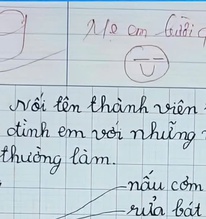 em
Nối tên thành viên
đình em với những
thường làm.
nấu cơm
rửa bát